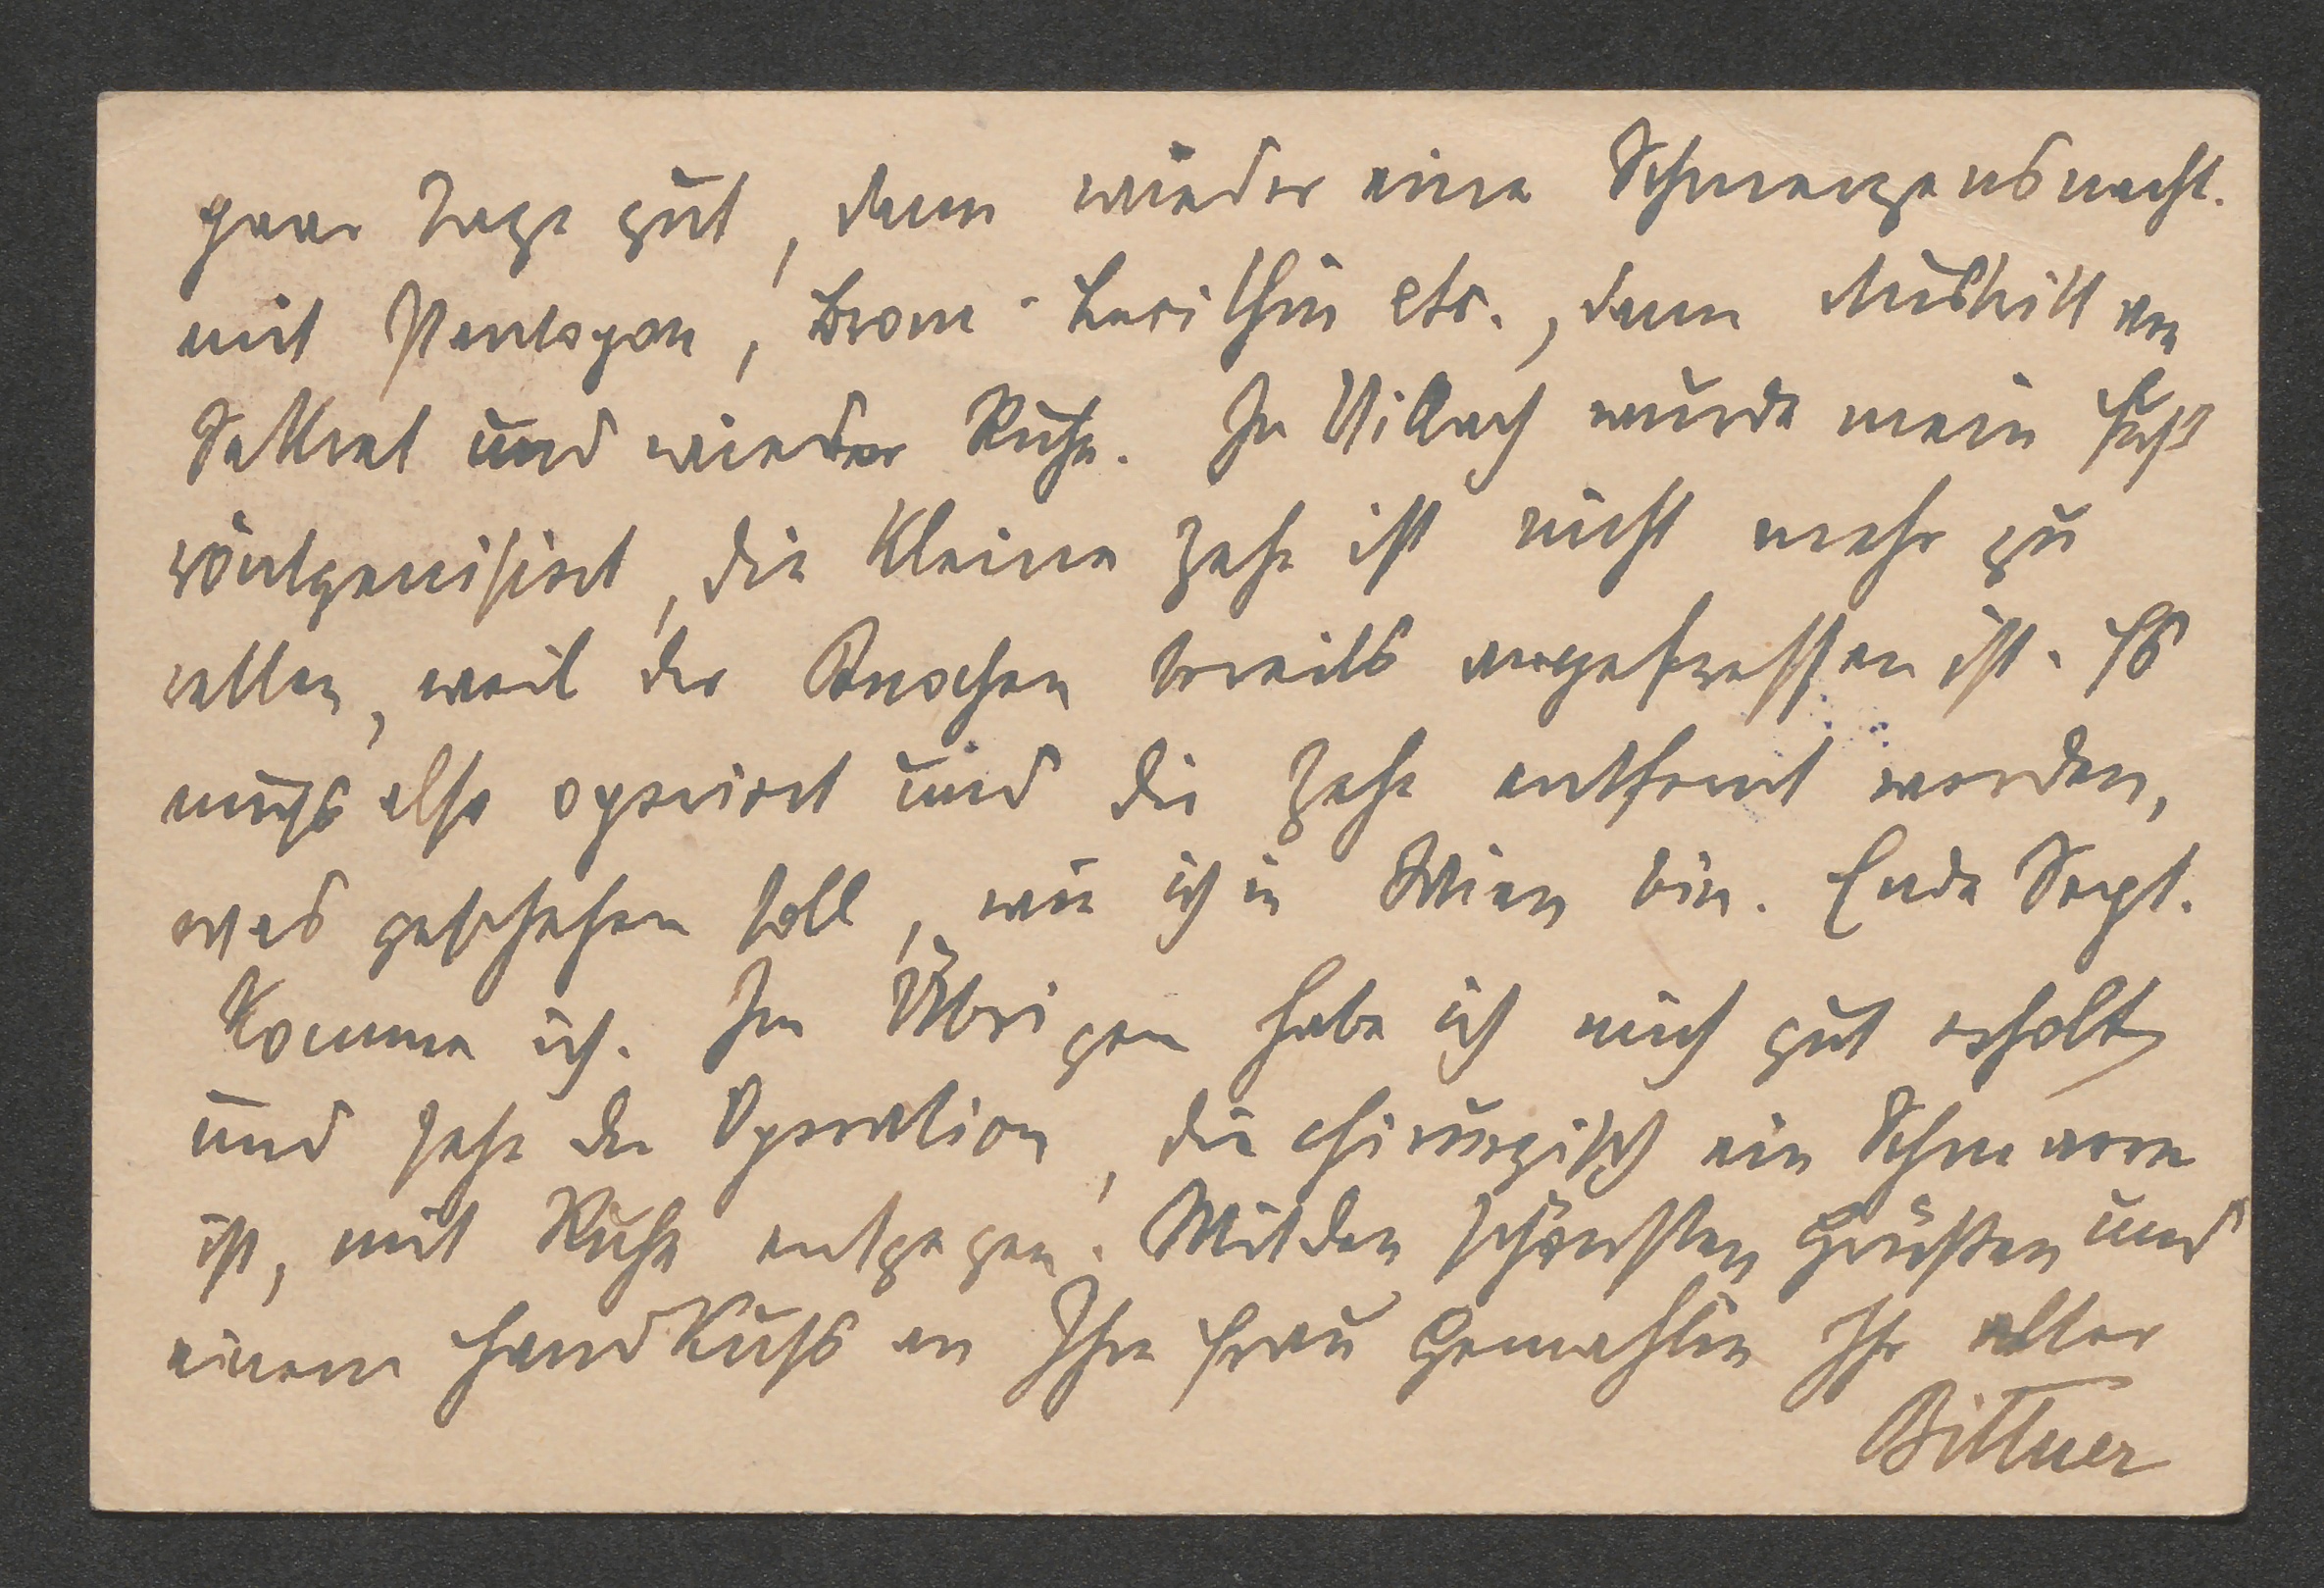 paar Tage gut, dann wieder eine Schmerzensnacht.
mit Pantopon, Brom-Lecithin etc., dann Austritt von
Sekret und wieder Ruhe. In Villach wurde mein Fuß
röntgenisirt, die kleine Zehe ist nicht mehr zu
retten, weil der Knochen bereits angefressen ist. Es
muß also operiert und die Zehe entfernt werden,
was geschehen soll, wie ich in Wien bin. Ende Sept.
komme ich. Im Übrigen habe ich mich gut erholt
und sehe der Operation, die chirurgisch ein Schmarrn
ist, mit Ruhe entgegen. Mit den schönsten Grüßen und
einem Handkuß an Ihre Frau Gemahlin Ihr alter
Bittner